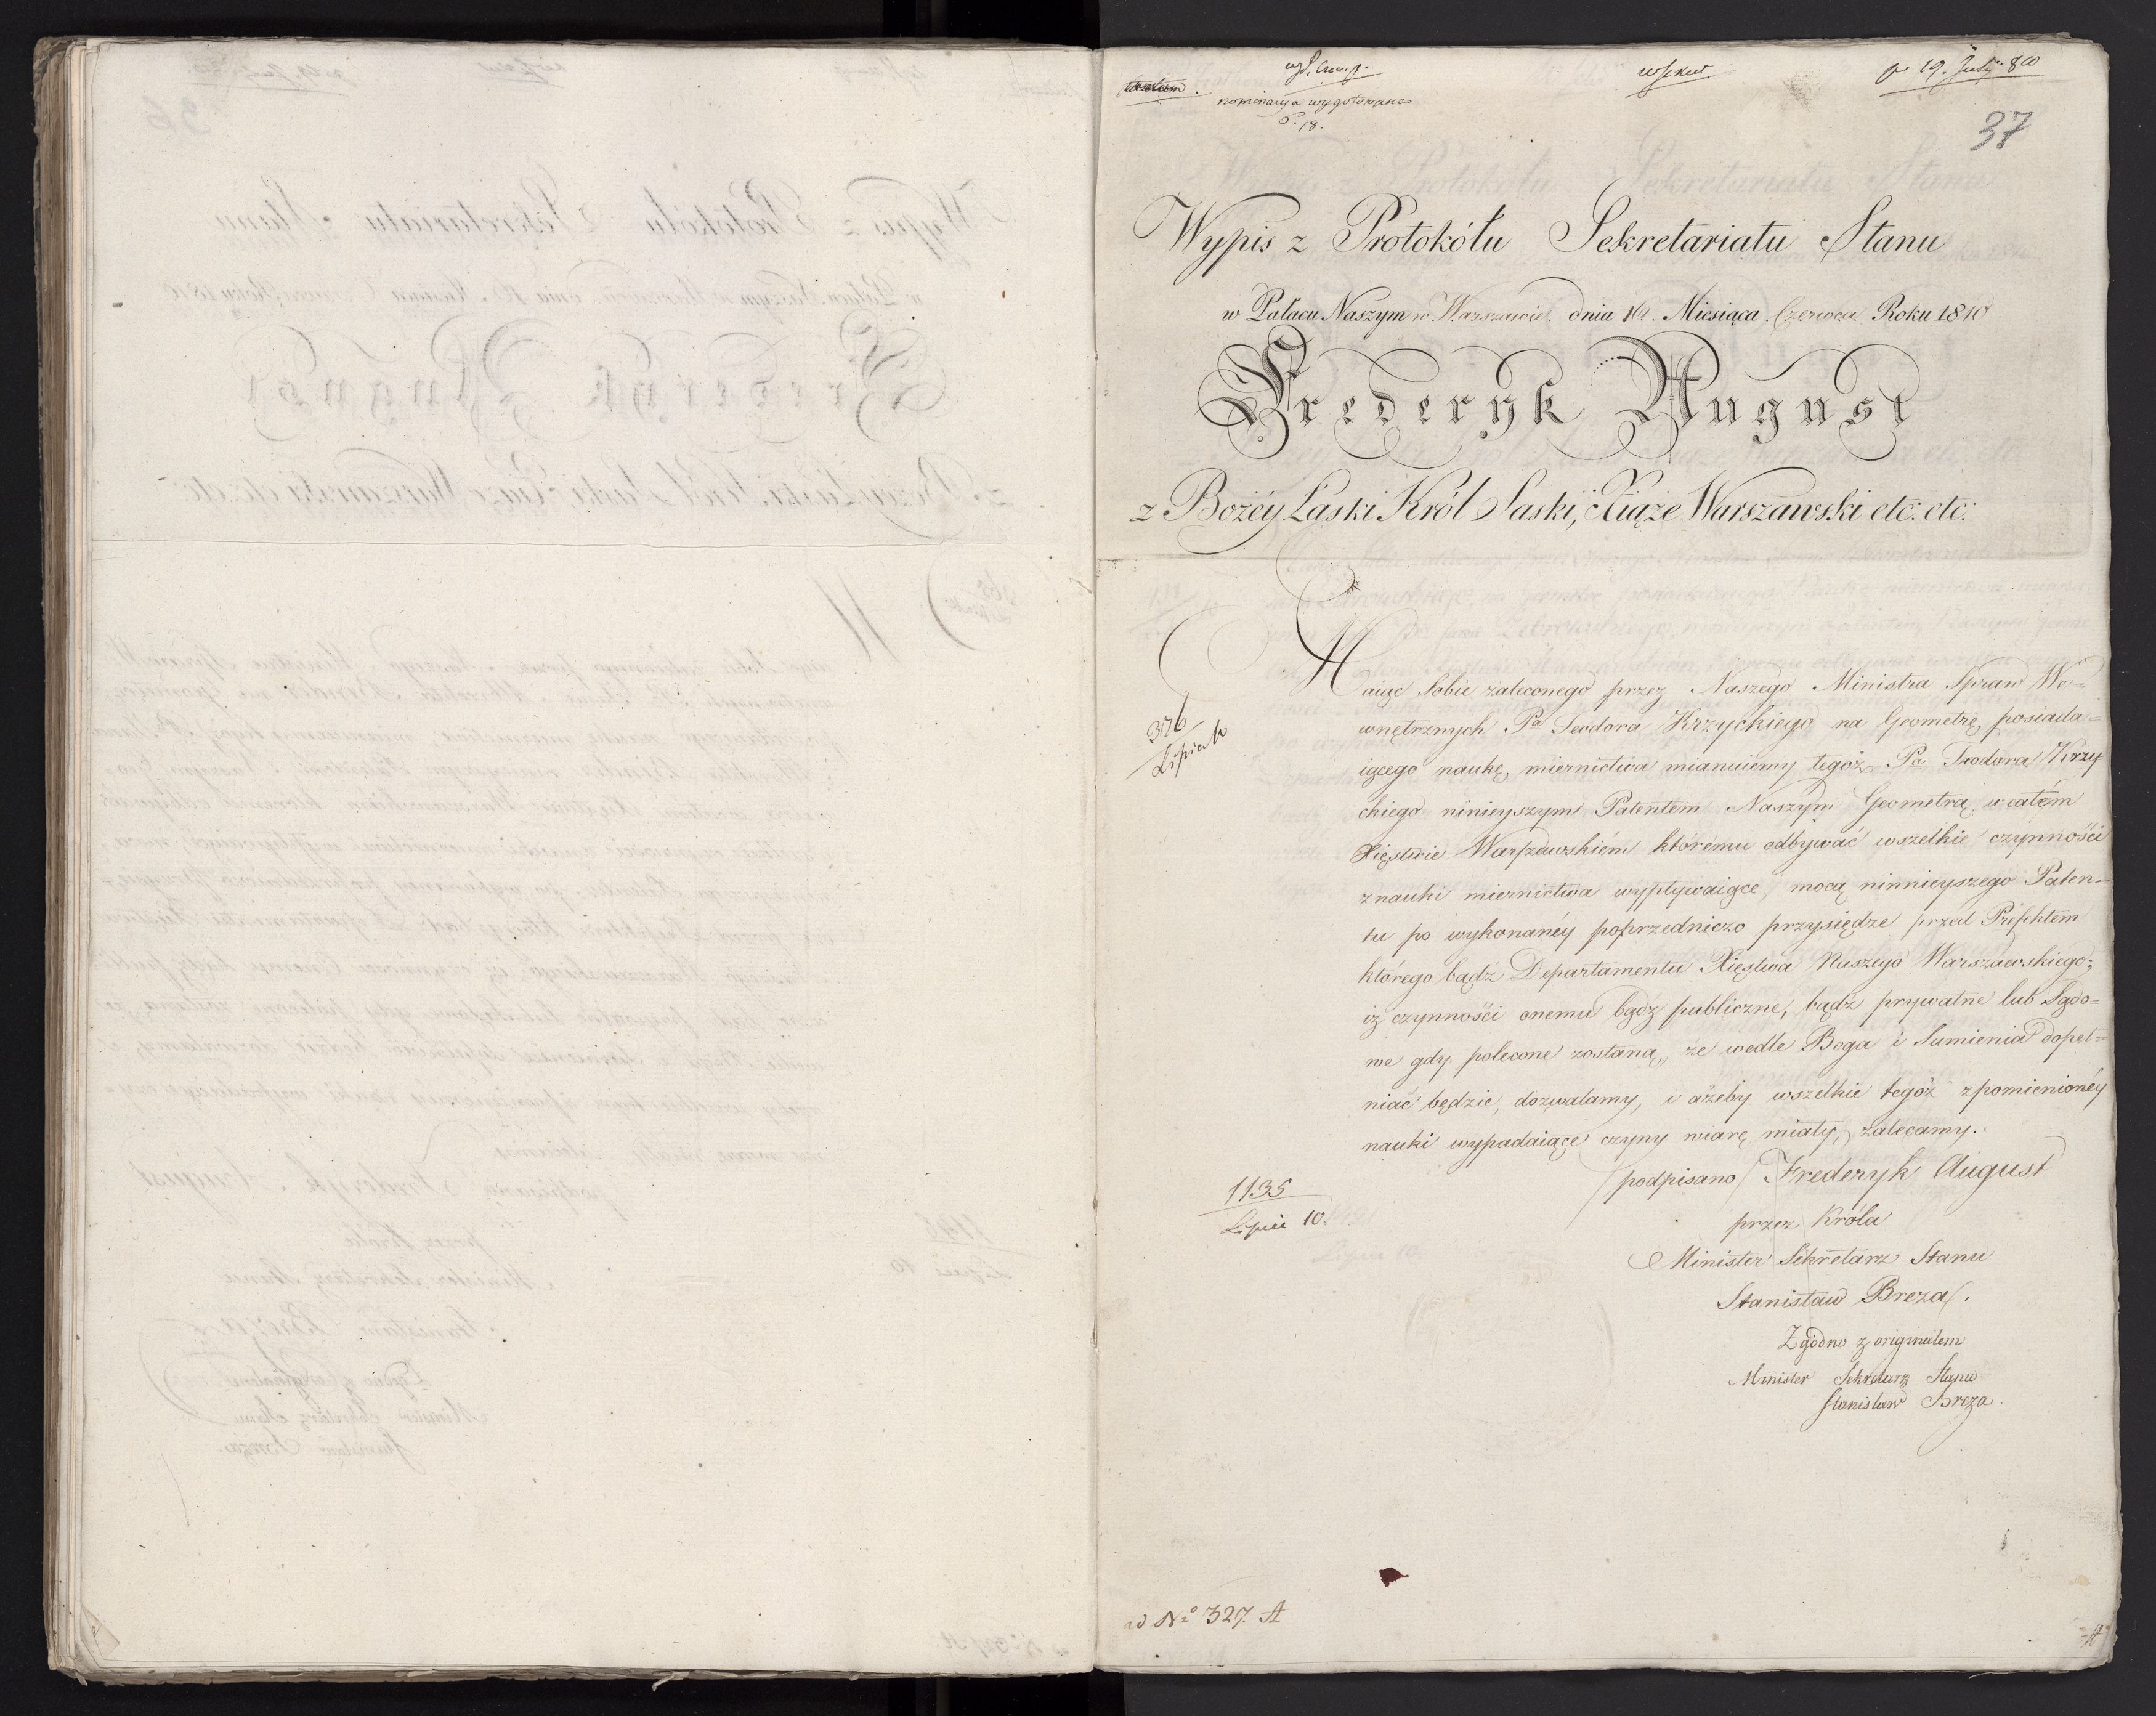 nominacya wygotowana
P. 18.
pr 19. Julij 810
37
Wypis z Protokółu Sekretariatu Stanu
w Pałacu Naszym w Warszawie. dnia 16. Miesiąca Czerwca. Roku 1810
Frederyk August
z Bożéy Łaski Król Saski, Xiąże Warszawski etc: etc:
Maiąc Sobie zaleconego przez Naszego Ministra Spraw We=
wnętrznych Pa Teodora Krzyckiego na Geometrę, posiada=
iącego naukę, miernictwa mianuiemy tegoż Pa Teodora Krzy
ckiego ninieyszym Patentem Naszym Geometrą w całém
Xięstwie Warszawskiém któremu odbywać wszelkie czynności
z nauki miernictwa wypływaiące, mocą ninnieyszego Paten=
tu po wykonanéy poprzedniczo przysiędze przed Prefektem
którego bądź Departamentu Xięstwa Naszego Warszawskiego;
iż czynności onemu bądz publiczne, bądź prywatne lub Sądo=
we gdy polecone zostaną, że wedle Boga i Sumienia dopeł=
niać będzie, dozwalamy, i ażeby wszelkie tegoż z pomienionéy
nauki wypadaiące czyny wiarę miały, zalecamy.
376
Lipiec
/podpisano/ Frederyk August
przez Króla
Minister Sekretarz Stanu
Stanisław Breza/.
1135
Lipiec 10.
Zgodno z originałem
Minister Sekretarz Stanu
Stanisław Breza.
ad No 327. A